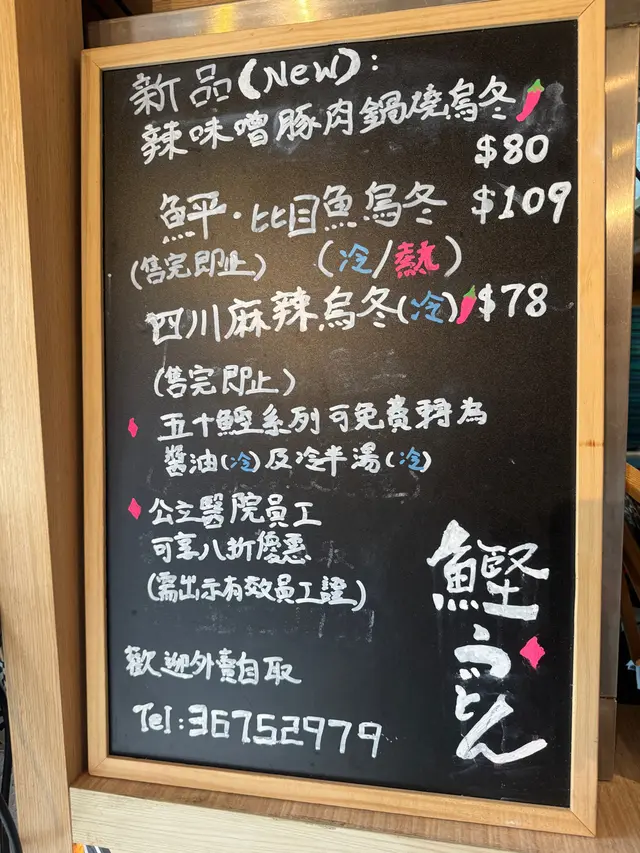 新品(New):
辣味噌豚肉鍋燒烏冬
$80
鮃·比目魚烏冬 $109
(售完即止) (冷/熱)
四川麻辣烏冬(冷) $78
(售完即止)
五十鰹系列可免費轉為
醬油(冷)及冷半湯(冷)
公立醫院員工
可享八折優惠
(需出示有效員工證)
歡迎外賣自取
Tel:36752979
鰹うどん